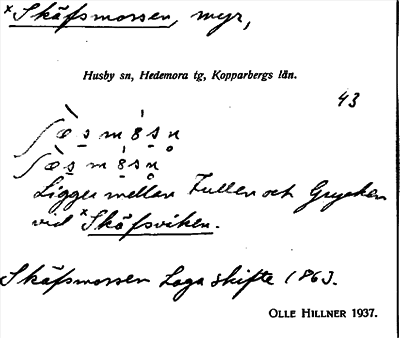 ×Skäfsmossen, myr,
Husby sn, Hedemora tg, Kopparbergs län.
43
Ligger mellan Fullen och Grycken
vid ×Skäfsviken.
Skäfsmossen Laga skifte 1863.
OLLE HILLNER 1937.